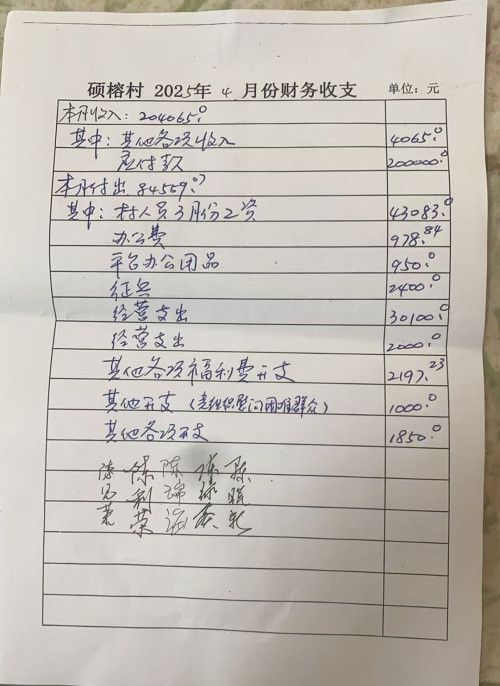 硕榕村 2025年 4 月份财务收支 单位：元
本月收入：204065.0
其中：其他各项收入 4065.0
应付款 200000.0
本月付出 84559.07
其中：村人员3月份工资 43083.0
办公费 978.84
平台办公用品 950.0
征兵 2400.0
经营支出 30100.0
经营支出 2000.0
其他各项福利费开支 2197.23
其他开支（党组织慰问困难群众） 1000.0
其他各项开支 1850.0